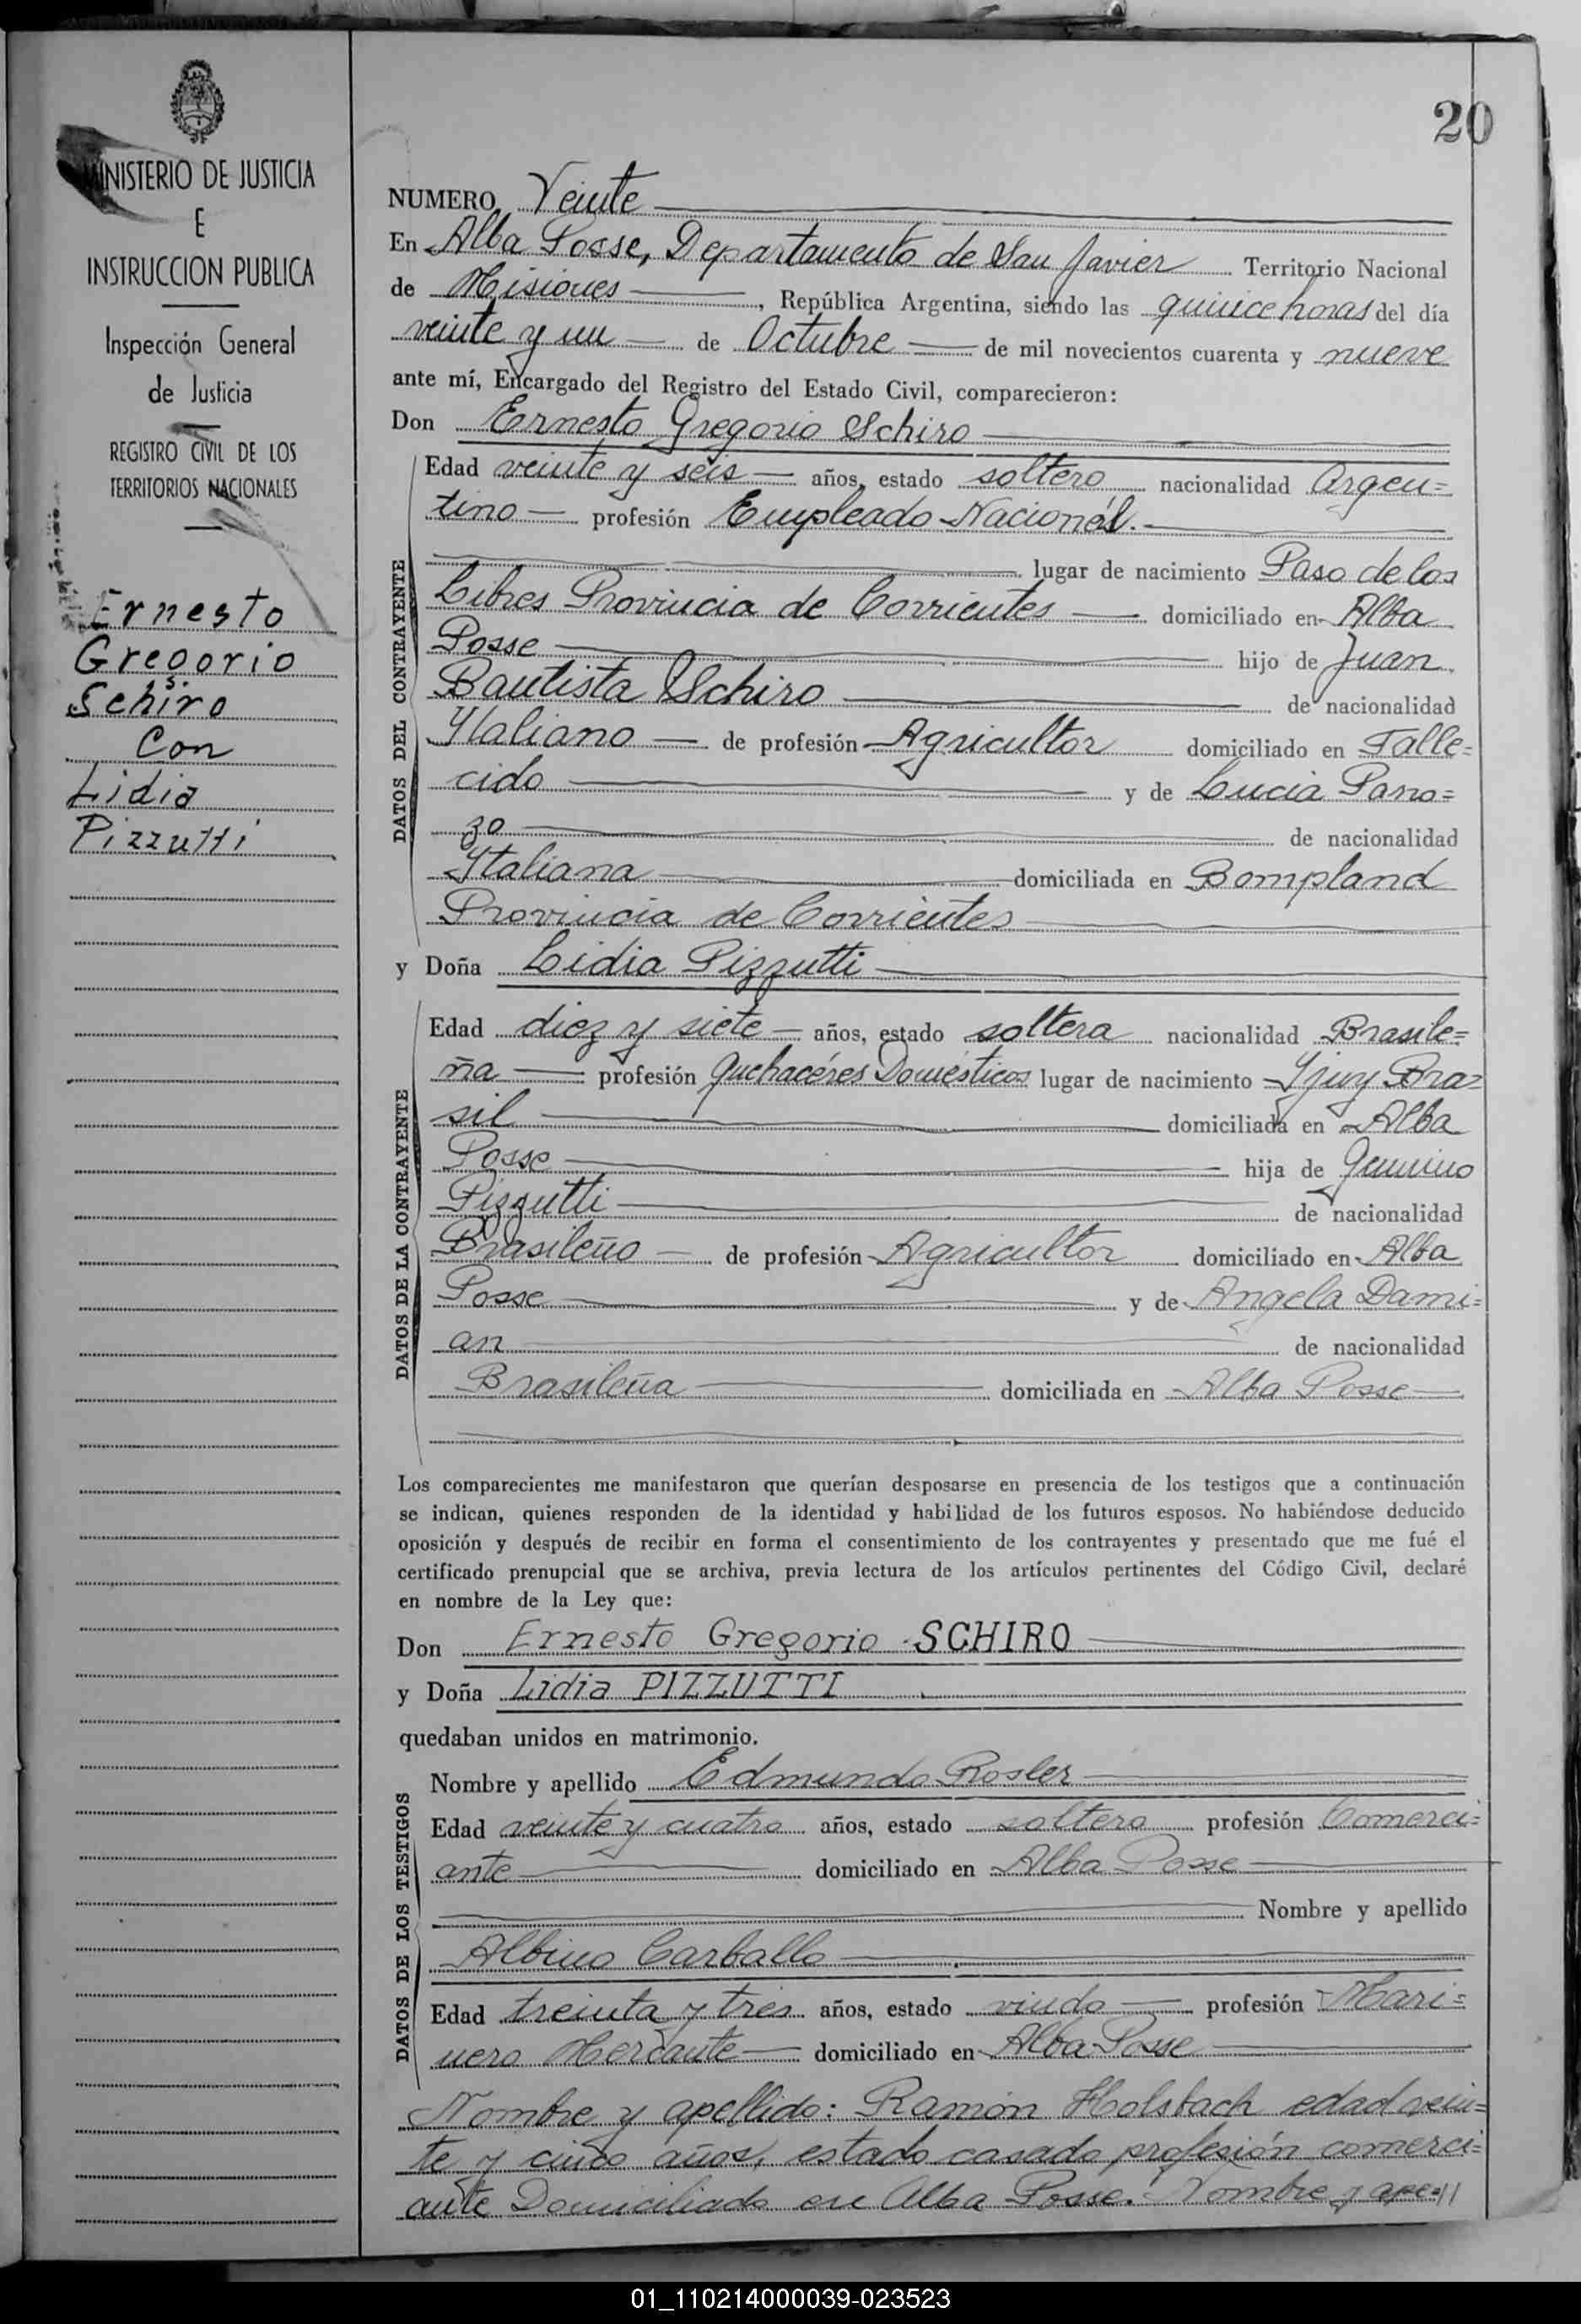 20
MINISTERIO DE JUSTICIA
E
INSTRUCCION PUBLICA
Inspección General
de Justicia
REGISTRO CIVIL DE LOS
TERRITORIOS NACIONALES
Ernesto
Gregorio
Schiro
Con
Lidia
Pizzutti
NUMERO Veinte
En Alba Posse, Departamento de San Javier Territorio Nacional
de Misiones, República Argentina, siendo las quince horas del día
veinte y un de Octubre de mil novecientos cuarenta y nueve
ante mí, Encargado del Registro del Estado Civil, comparecieron:
Don Ernesto Gregorio Schiro
DATOS DEL CONTRAYENTE
Edad veinte y seis años, estado soltero nacionalidad Argen=
tino profesión Empleado Nacional.
lugar de nacimiento Paso de los
Libres Provincia de Corrientes domiciliado en Alba
Posse hijo de Juan
Bautista Schiro de nacionalidad
Ytaliano de profesión Agricultor domiciliado en Falle=
cido y de Lucia Pano=
zo de nacionalidad
Ytaliana domiciliada en Bompland
Provincia de Corrientes
y Doña Lidia Pizzutti
DATOS DE LA CONTRAYENTE
Edad diez y siete años, estado soltera nacionalidad Brasile=
ña profesión Quehacéres Domésticos lugar de nacimiento Yjuy Bra=
sil domiciliada en Alba
Posse hija de Genuino
Pizzutti de nacionalidad
Brasileño de profesión Agricultor domiciliado en Alba
Posse y de Angela Dami=
an de nacionalidad
Brasileña domiciliada en Alba Posse
Los comparecientes me manifestaron que querían desposarse en presencia de los testigos que a continuación
se indican, quienes responden de la identidad y habilidad de los futuros esposos. No habiéndose deducido
oposición y después de recibir en forma el consentimiento de los contrayentes y presentado que me fué el
certificado prenupcial que se archiva, previa lectura de los artículos pertinentes del Código Civil, declaré
en nombre de la Ley que:
Don Ernesto Gregorio SCHIRO
y Doña Lidia PIZZUTTI
quedaban unidos en matrimonio.
DATOS DE LOS TESTIGOS
Nombre y apellido Edmundo Rosler
Edad veinte y cuatro años, estado soltero profesión Comerci=
ante domiciliado en Alba Posse
Nombre y apellido
Albino Carballo
Edad treinta y tres años, estado viudo profesión Mari=
nero Mercante domiciliado en Alba Posse
Nombre y apellido: Ramón Holsbach edad vein=
te y cinco años, estado casado profesión comerci=
ante Domiciliado en Alba Posse. Nombre y ape=//
01_110214000039-023523